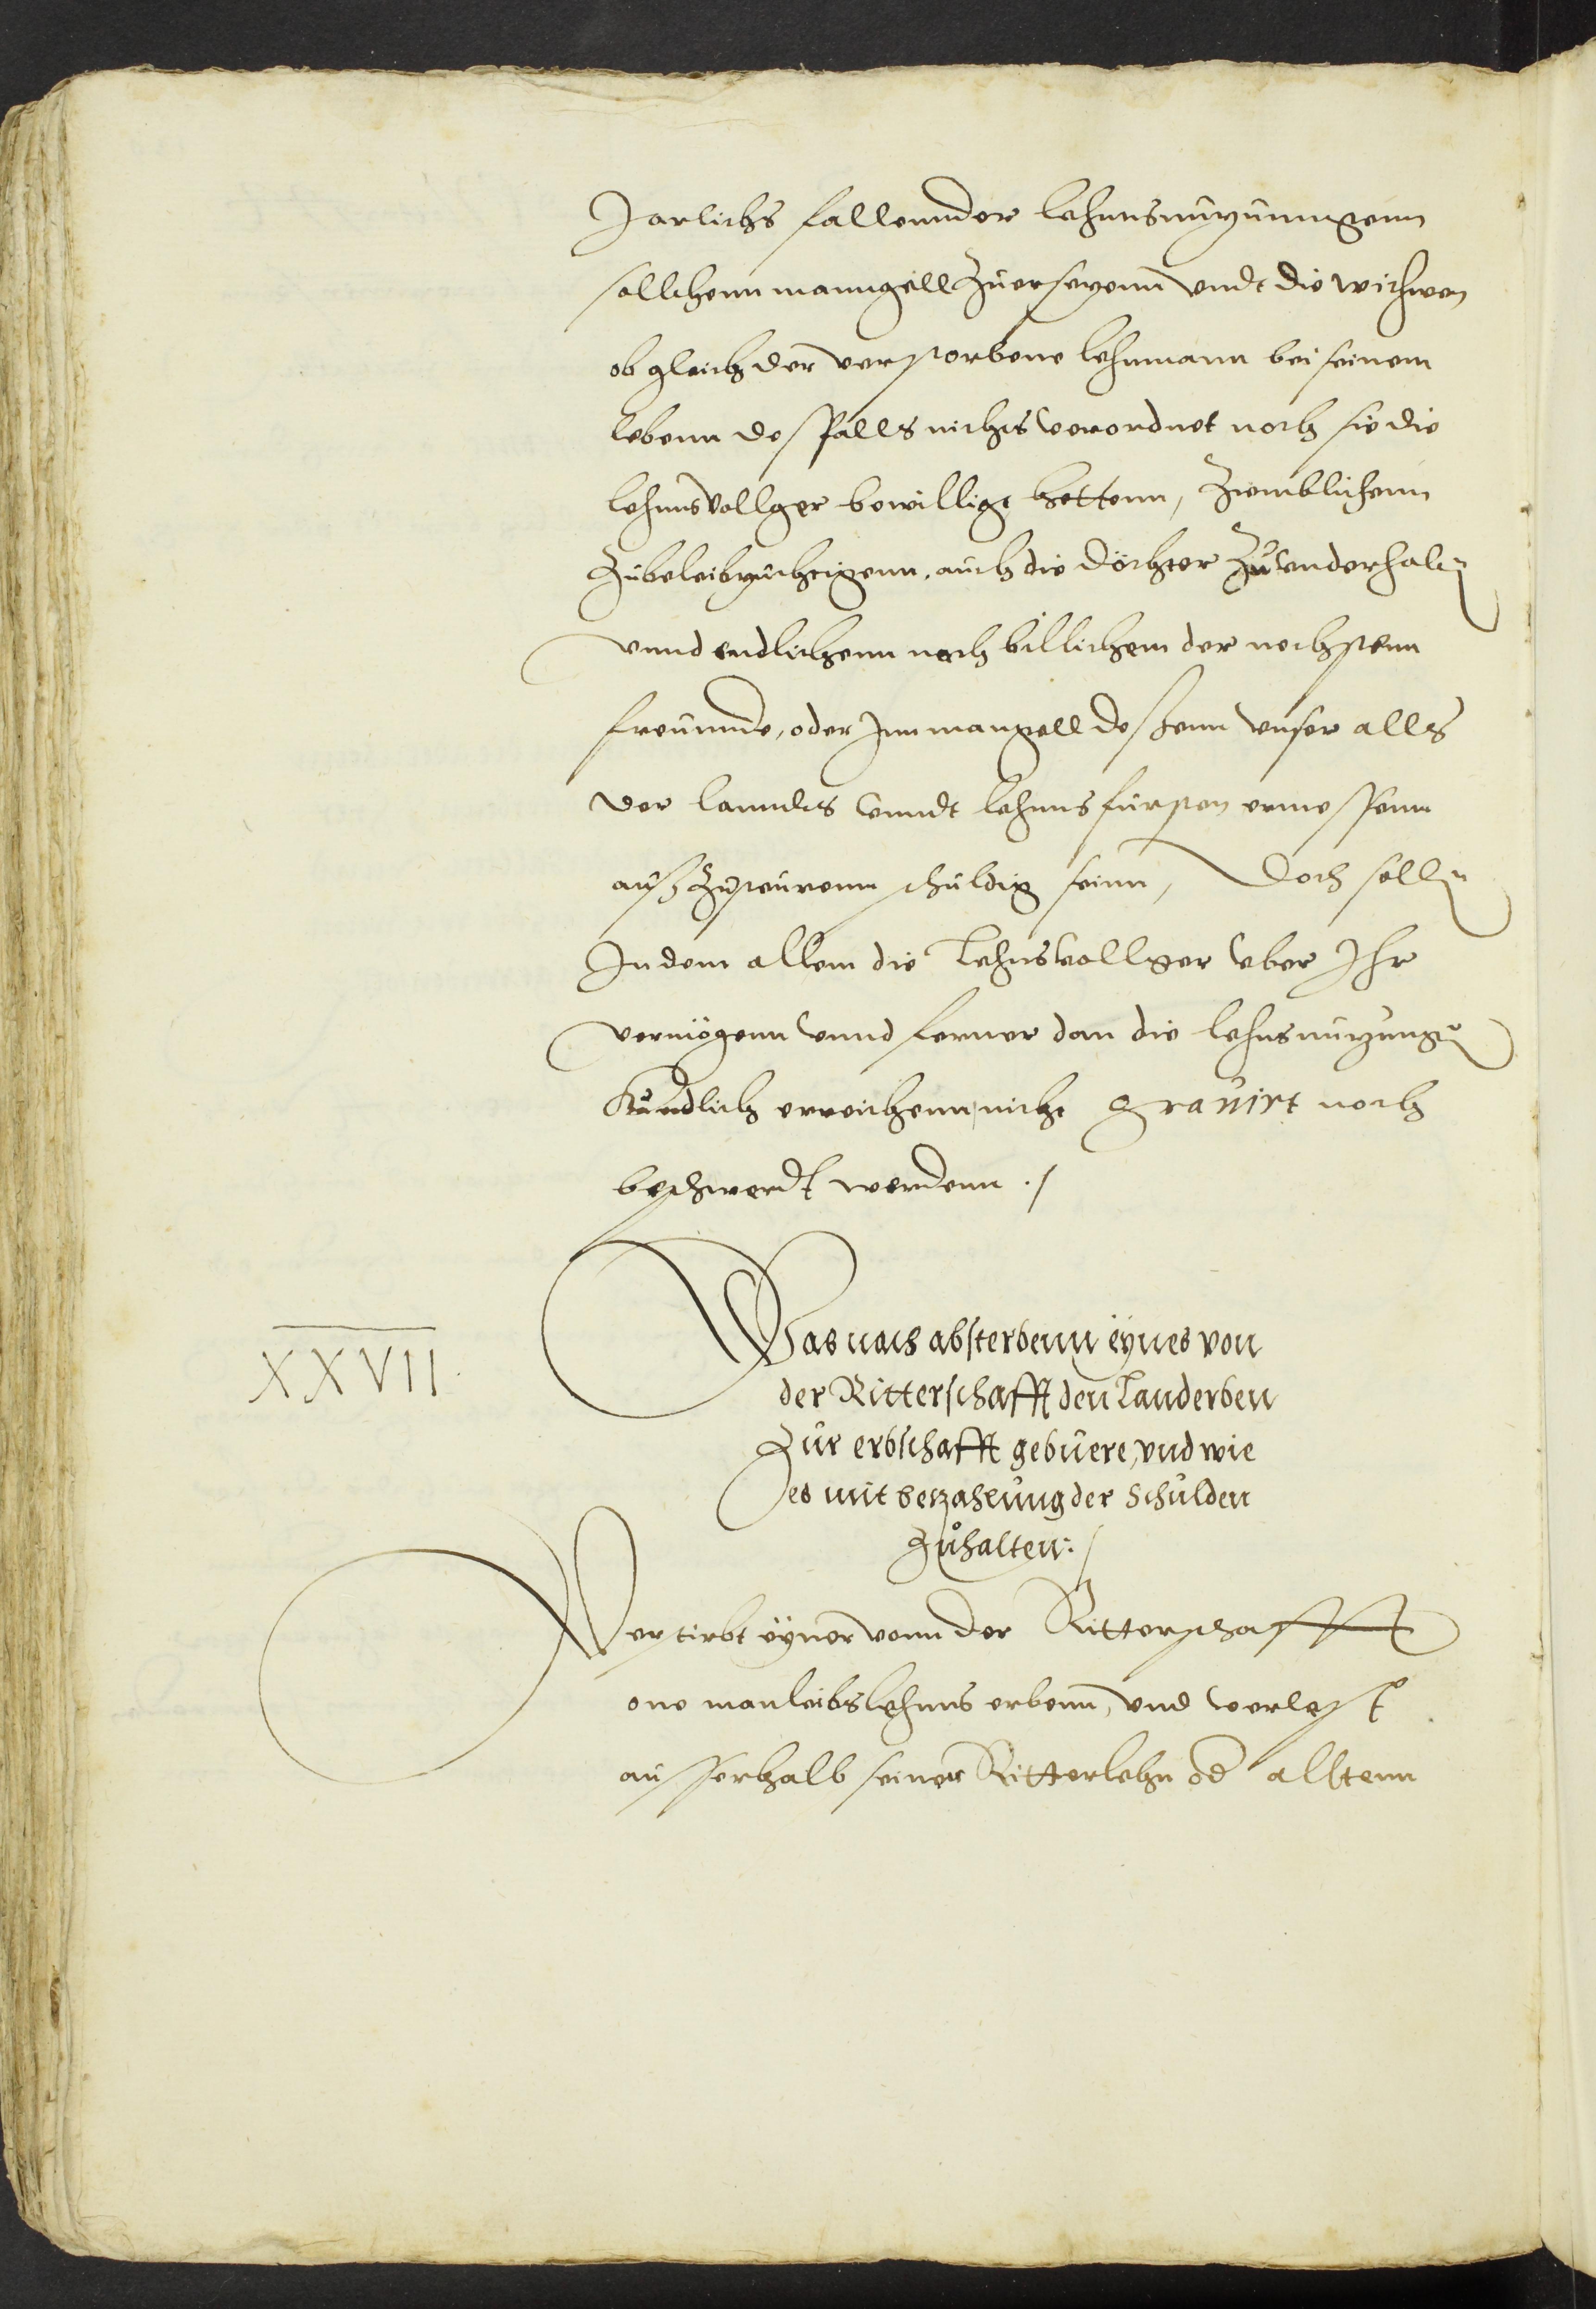 Jarlichs fallennder lehnnsnutzunngenn
sollchenn manngell Zuersetzenn vndt die witwen
ob gleich der verstorbene lehnmann bei seinem
lebenn desfalls nichts verordnet noch sie die
lehnnsvollger bewilligt hettenn, Zimblichenn
Zubeleibzuchtigenn, auch die döchter Zu vnderhalten
vnnd endlichenn nach billichem der nechstenn
freunnde, oder Jnn mangell deßenn vnser alls
der lanndes vnndt lehnnsfursten ermessenn
auß Zusteurenn schuldig seinn, Doch sollen
Jn dem allem die lehnsvollger vber Jhr
vermögenn vnnd ferner dan die lehnsnutzungen
Kundlich erreichenn, nicht gravirt noch
beschwerdt werdenn ./
XXVII.
Was nach absterbenn eynes von
der Ritterschafft den Landerben
Zur erbschafft gebuere, vnd wie
es mit bezahlung der Schulden
Zuhalten:/
Verstirbt eyner vonn der Ritterschafft
one manleibs lehnns erbenn, vnd verlest
ausserhalb seiner Ritterlehn od alltenn